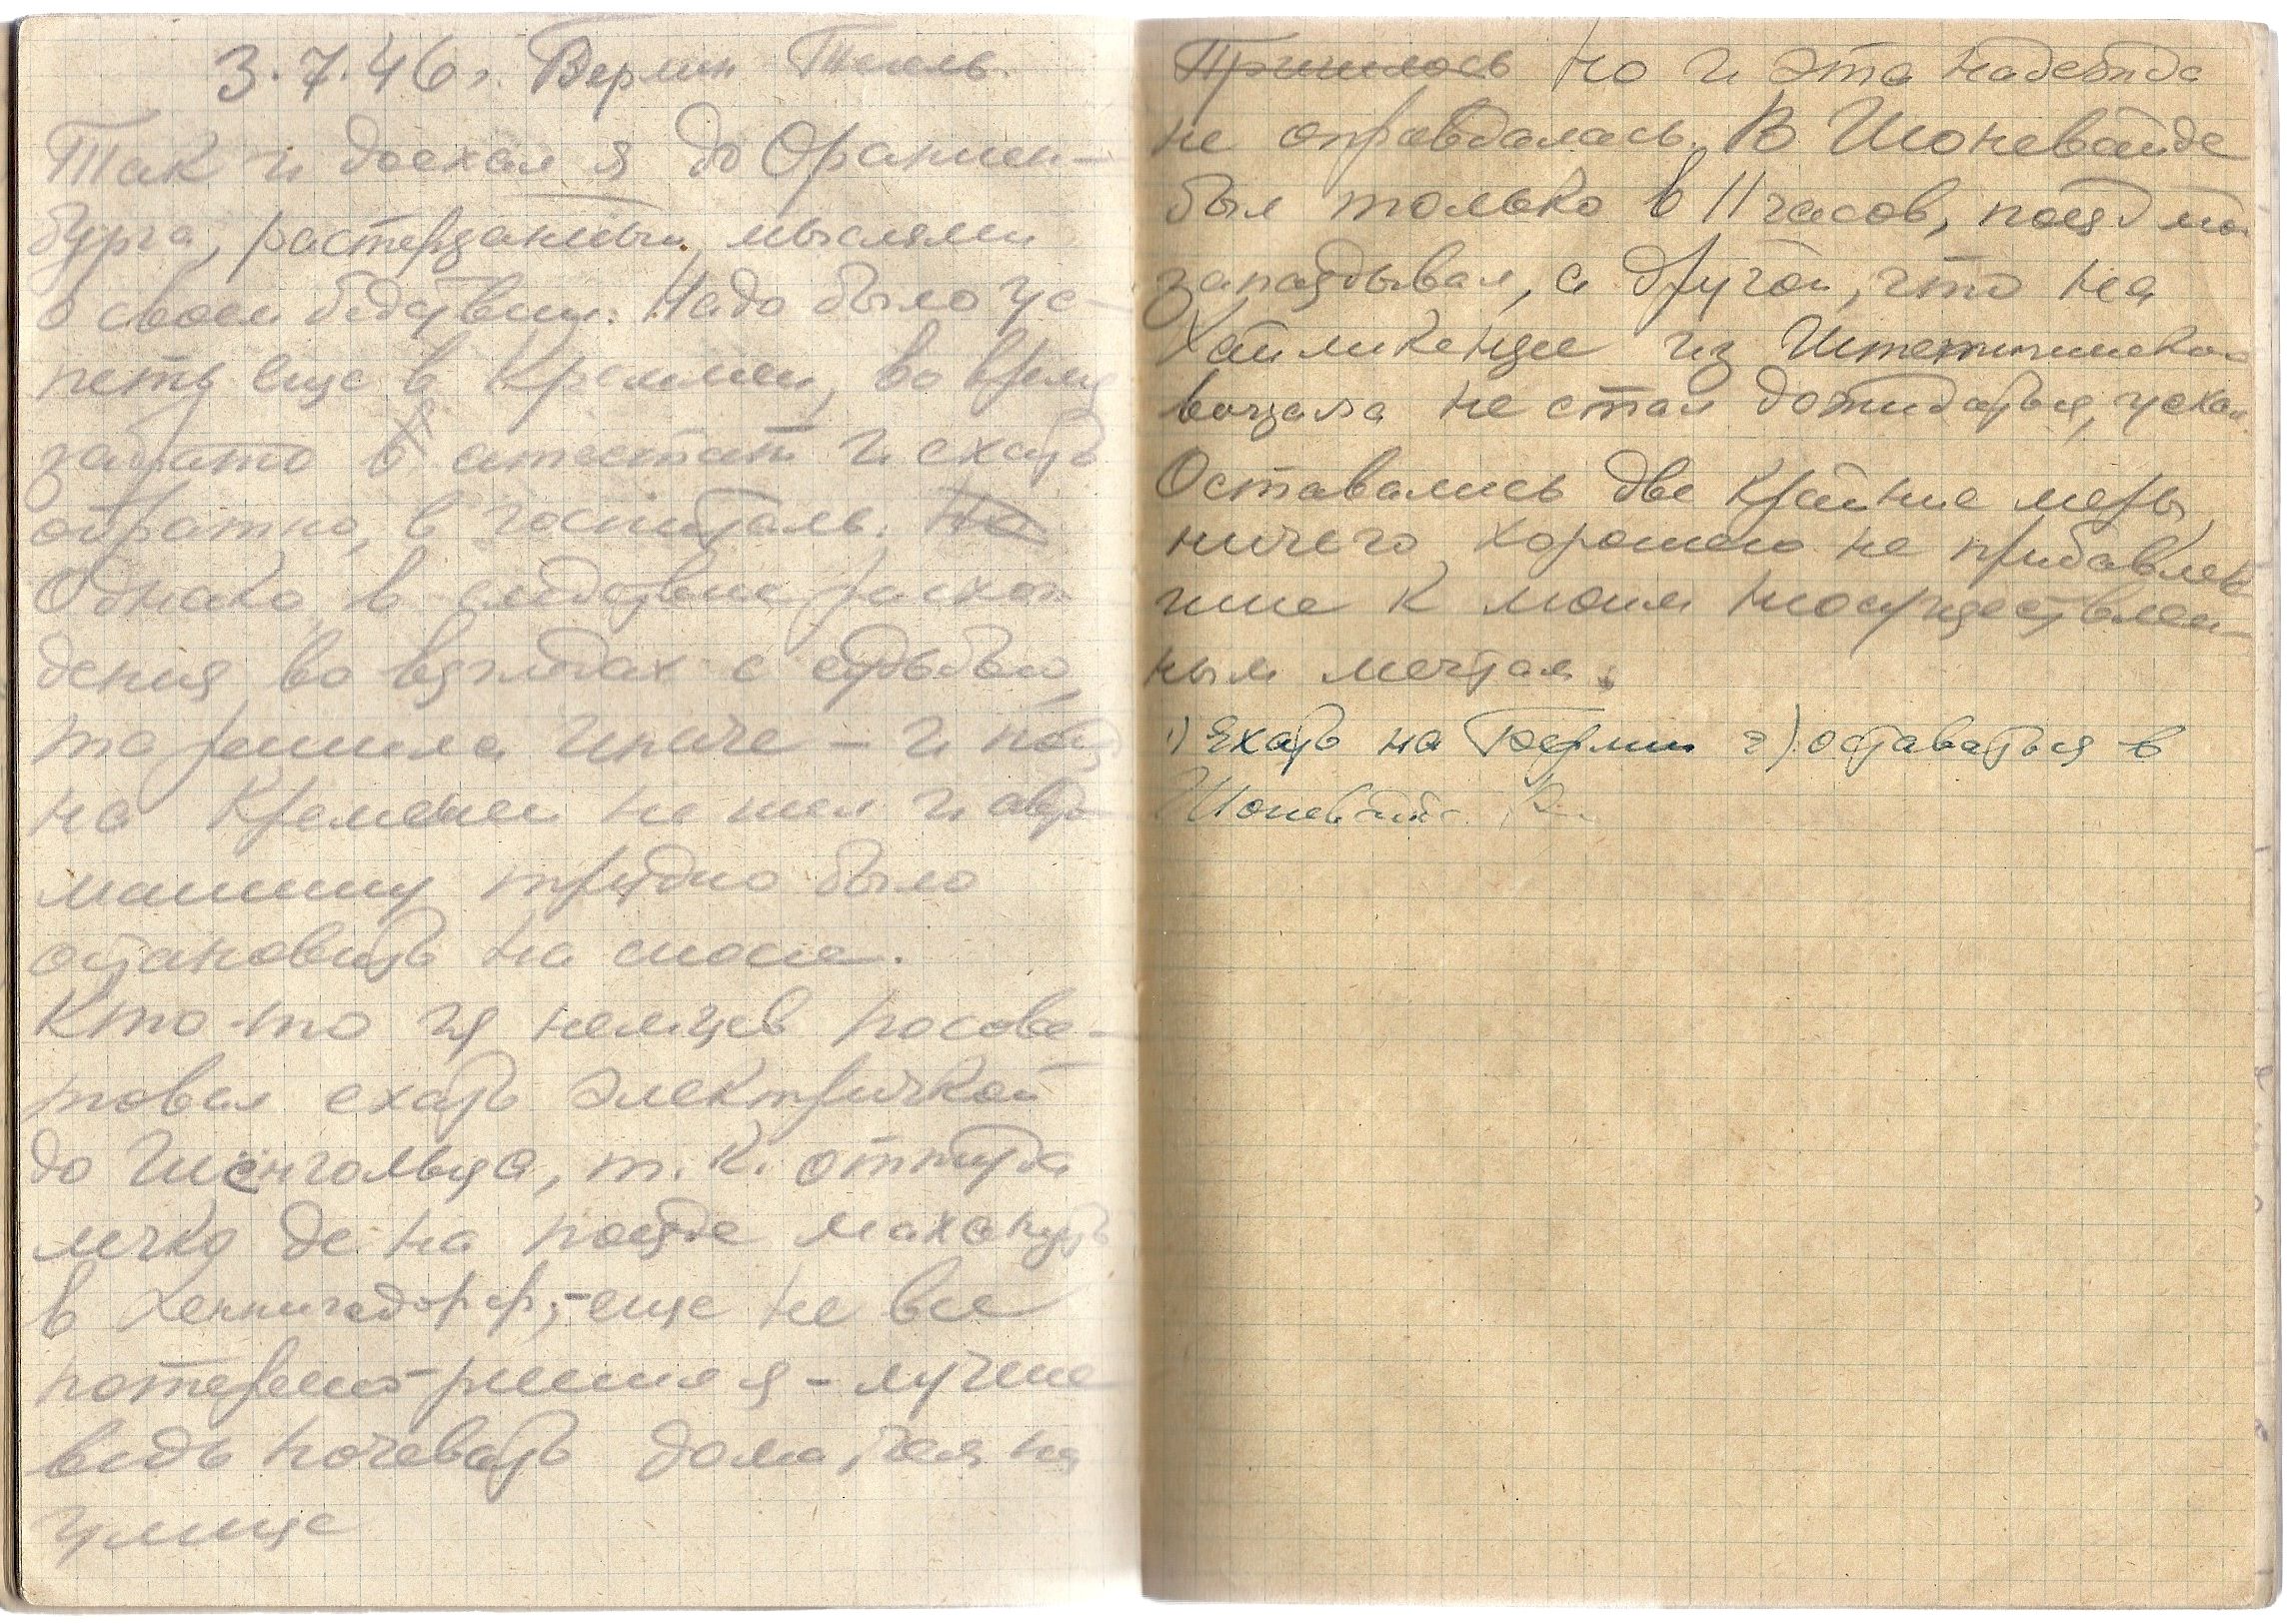 3.7.46г. Берлин Тегель.
Так и доехал я до Ораниен-
бурга, растерзанный мыслями
о своем бедствии. Надо было ус-
петь еще в Креммен, во время
забрать в атестат и ехать
обратно, в госпиталь. Но
Однако, в следствие расхож
дения во взглядах с судьбой,
та решила иначе – и поезд
на Кремmen не шел и авто
машину трудно было
остановить на шоссе.
Кто-то из немцев посове-
товал ехать электричкой
до Шёнгольца, т.к. оттуда
легко де на поезде махануть
в Хеннигсдорф,-еще не все
потеряно-решил я-лучше
ведь ночевать дома, чем на
улице
Пришлось Но и эта надежда
не оправдалась. В Шоневайде
был только в 11 часов, поезд мой
запаздывал, а другой, что на
Хайлигензее из Штеттинского
вокзала не стал дожидаться, уехал.
Оставались две крайние меры,
ничего хорошего не прибавляю
щие к моим неосуществлен-
ным мечтам:
1) Ехать на Берлин 2) оставаться в
Шоневайде.